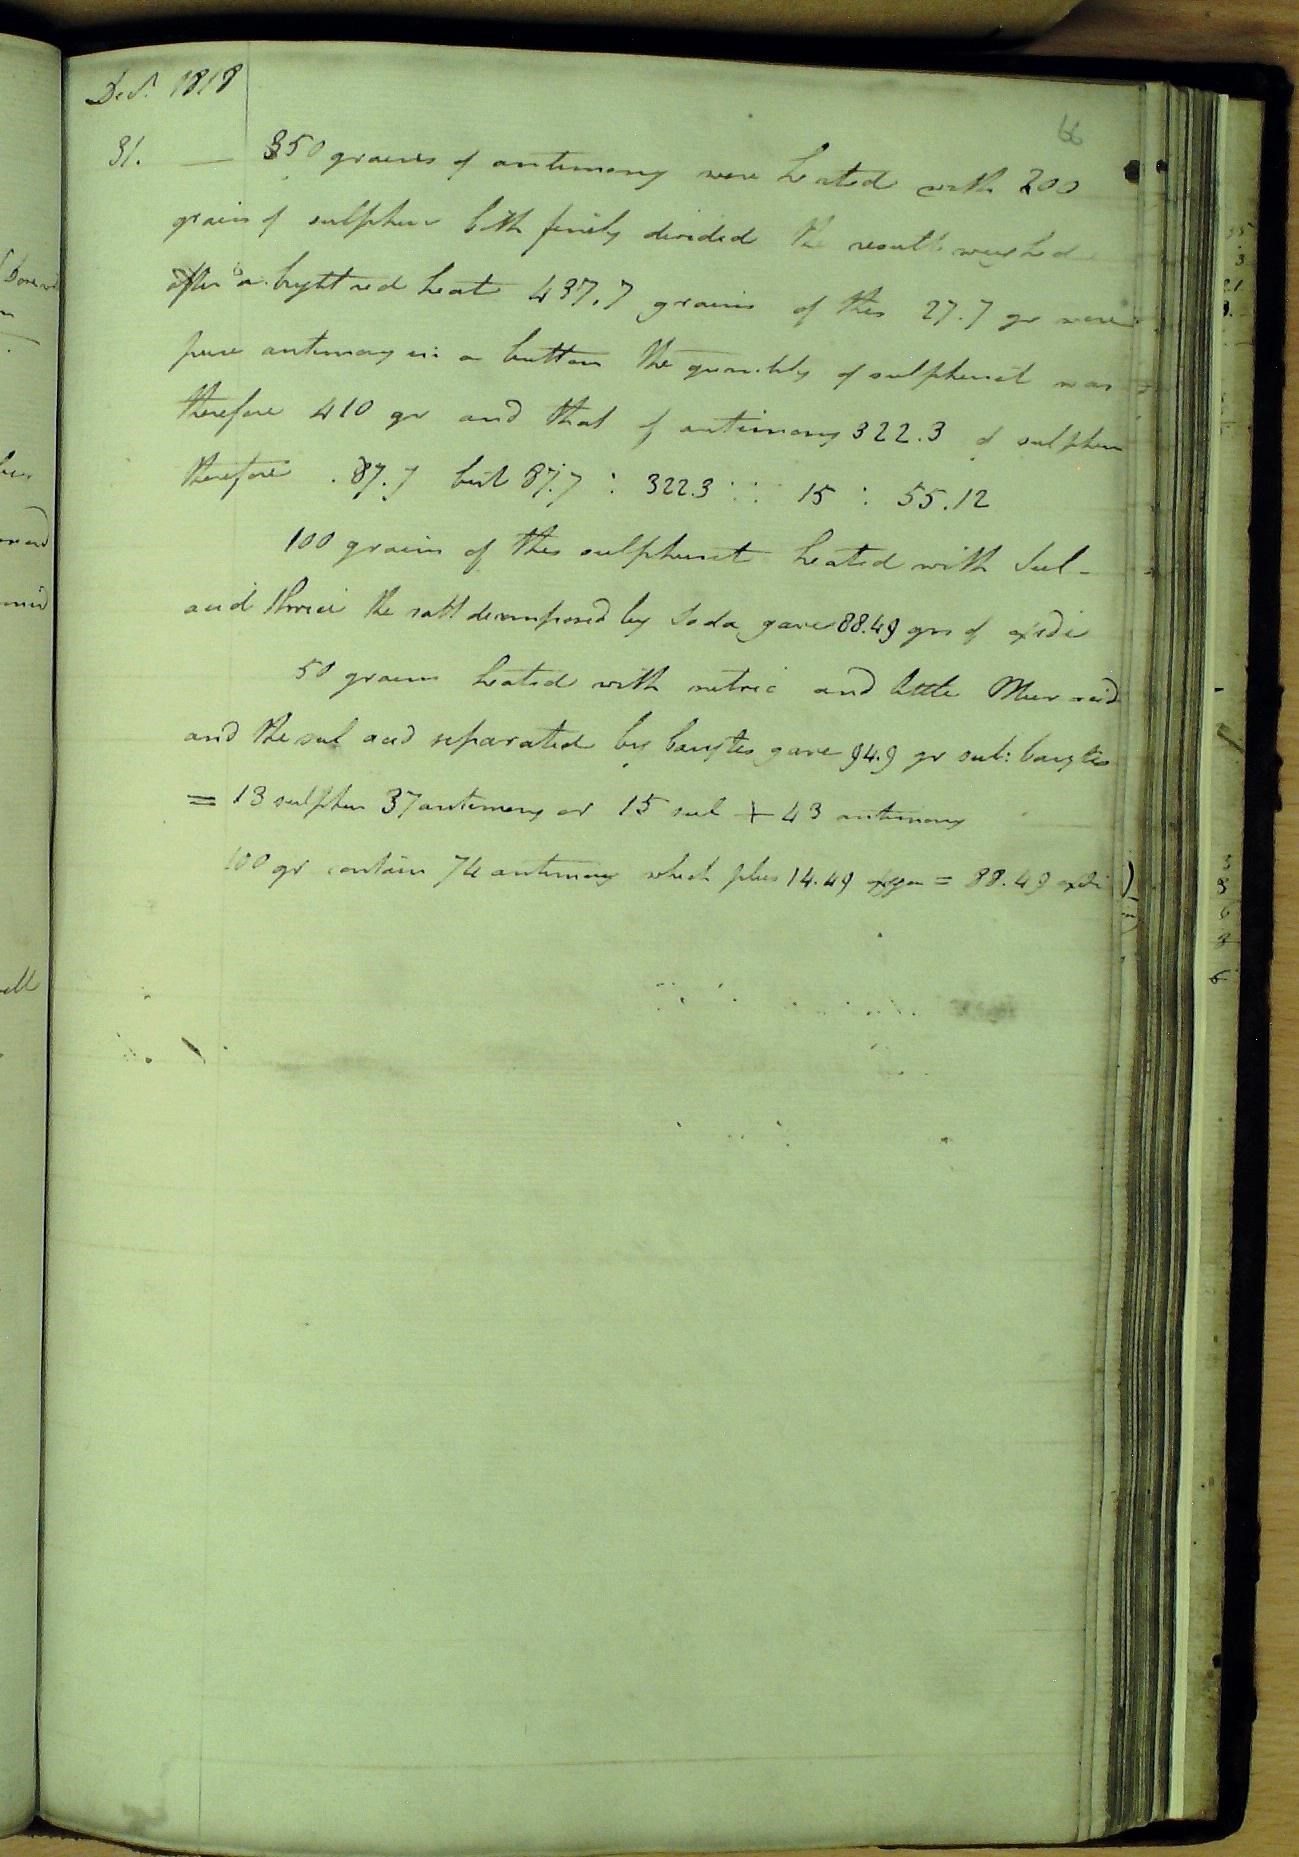 Decr. 1818
66
31. — 350 grains of antimony were heated with 200
grains of sulphur both finely divided the result weighed
after a bright red heat 437.7 grains of this 27.7 gr were
pure antimony in a button the quantity of sulphuret was
therefore 410 gr and that of antimony 322.3 of sulphur
therefore 87.7 but 87.7 : 322.3 :: 15 : 55.12
100 grains of this sulphuret heated with Sul-
acid thrice the salt decomposed by Soda gave 88.49 grs of oxide
50 grains heated with nitric and little Mur acid
and the sul acid separated by barytes gave 94.9 gr sul: barytes
= 13 sulphur 37 antimony or 15 sul + 43 antimony
100 gr contain 74 antimony which plus 14.49 oxygen = 88.49 oxide